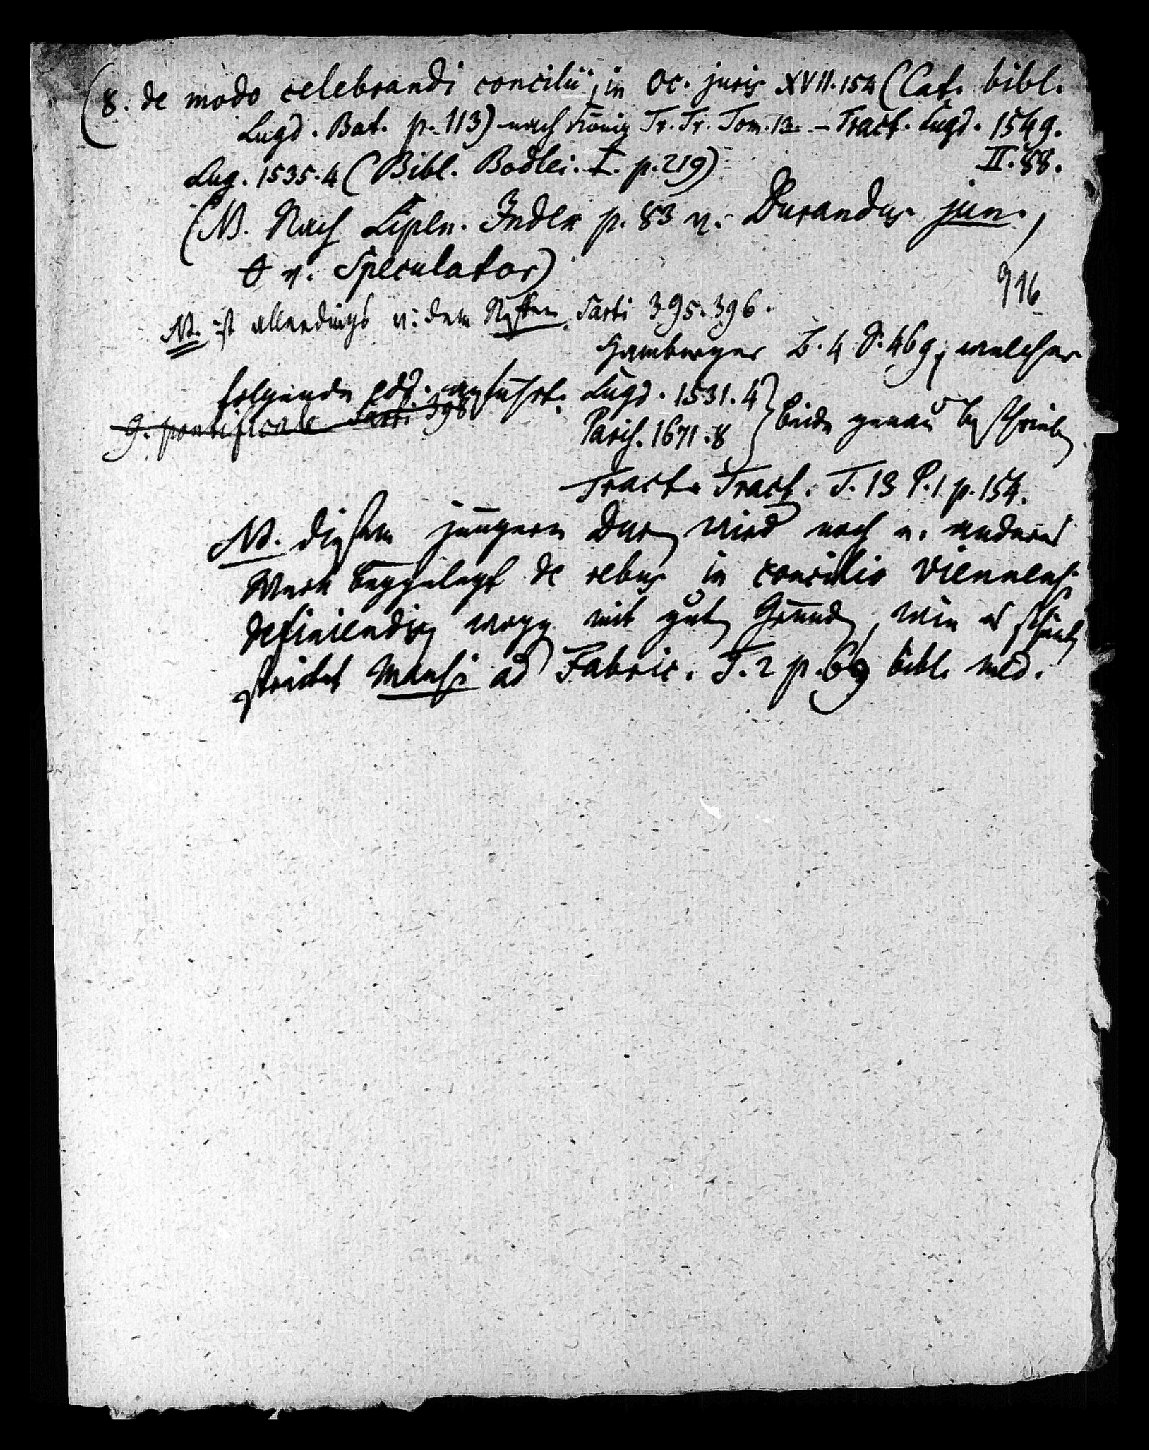 (8. de modo celebrandi concilii, in Oc. juris XVII. 154 (Cat. bibl.
Lugd. Bat. p. 113) nach König Tr. Tr. Tom. 13. – Tract. Lugd. 1549.
II. 88.
Lug. 1535. 4 (Bibl. Bodlei. I. p. 219)
(NB. Nach Lipen. Index p. 83 v. Durandus jun.,
v. Speculator)
916
NB. ist allerdings v. dem Neffen. Sarti 395. 396.
Hamburger B. 4 S. 469, welcher
folgende edd. anführt: Lugd. 1531. 4
9. pontificale Sarti 398
Paris. 1671. 8 } beide genau beschrieben
Tract. Tract. T. 13 P. 1 p. 154.
NB. diesem jüngern Dur. wird noch e. anderes
Werk beygelegt de rebus in concilio Viennensi
definiendis wogegen mit guten Gründen, wie es scheint,
streitet Mansi ad Fabric. T. 2 p. 69 bibl. med.